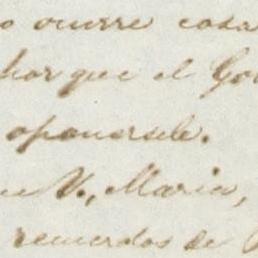 o ocurre cosa
que el Go
oponersele.
ue V., Maria,
recuerdos de